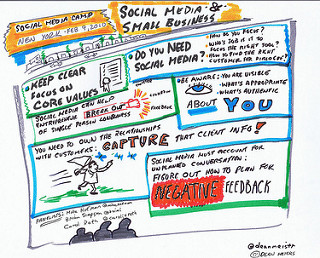 SOCIAL MEDIA CAMP
NEW YORK - FEB 4, 2010
SOCIAL MEDIA &
SMALL BUSINESS
DO YOU NEED
SOCIAL MEDIA?
HOW DO YOU FOCUS?
WHO'S JOB IS IT TO
CHOOSE THE RIGHT TOOL?
HOW TO FIND THE RIGHT
CUSTOMER FOR DIALOGUE?
KEEP CLEAR
FOCUS ON
CORE VALUES
BE AWARE: YOU ARE VISIBLE
WHAT'S APPROPRIATE
WHAT'S AUTHENTIC
ABOUT YOU
SOCIAL MEDIA CAN HELP
ENTREPRENEUR BREAK OUT
OF SINGLE PERSON LONELINESS
FEEDBACK
YOU NEED TO OWN THE RELATIONSHIPS
WITH CUSTOMERS: CAPTURE THAT CLIENT INFO!
SOCIAL MEDIA MUST ACCOUNT FOR
UNPLANNED CONVERSATION:
FIGURE OUT HOW TO PLAN FOR
NEGATIVE FEEDBACK
PANELISTS:
@deanmeistr
© DEAN MEYERS